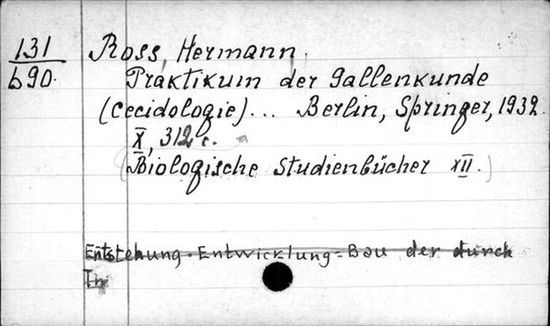 131
690.
Ross, Hermann.
Praktikum der Gallenkunde
(Cecidologie)... Berlin, Springer, 1932.
X, 312 c.
(Biologische Studienbücher XII.)
Entstehung-Entwicklung-Bau der durch